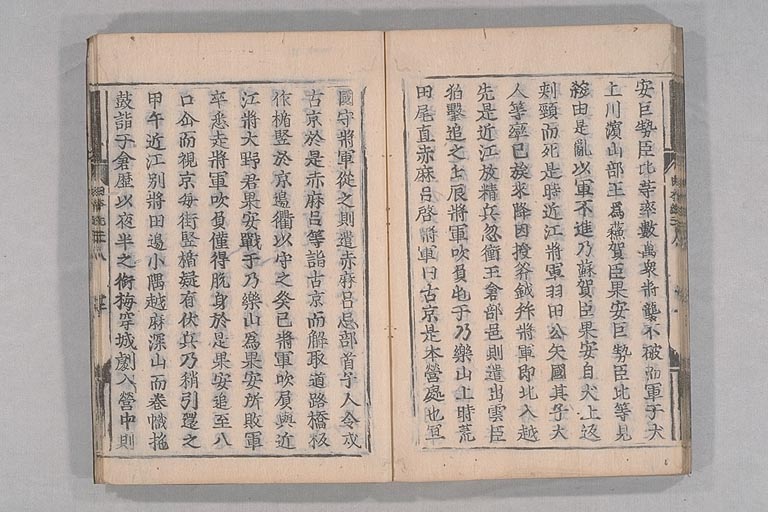 安巨勢臣比等率數萬衆將襲不破而軍于犬
上川濱山部王爲蘇賀臣果安巨勢臣比等見
殺由是亂以軍不進乃蘇賀臣果安自犬上返
刺頸而死是時近江將軍羽田公矢國其子大
人等率己族來降因授斧鉞拜將軍即北入越
先是近江放精兵忽衝玉倉部邑則遣出雲臣
狛擊追之壬辰將軍吹負屯于乃樂山上時荒
田尾直赤麻呂啓將軍曰古京是本營處也宜
國守將軍從之則遣赤麻呂忌部首子人令戍
古京於是赤麻呂等詣古京而解取道路橋板
作楯竪於京邊衢以守之癸巳將軍吹負與近
江將大野君果安戰于乃樂山爲果安所敗軍
卒悉走將軍吹負僅得脫身於是果安追至八
口仚而視京每街竪楯疑有伏兵乃稍引還之
甲午近江別將田邊小隅越麻深山而卷幟抱
鼓詣于倉歷以夜半之銜梅穿城劇入營中則